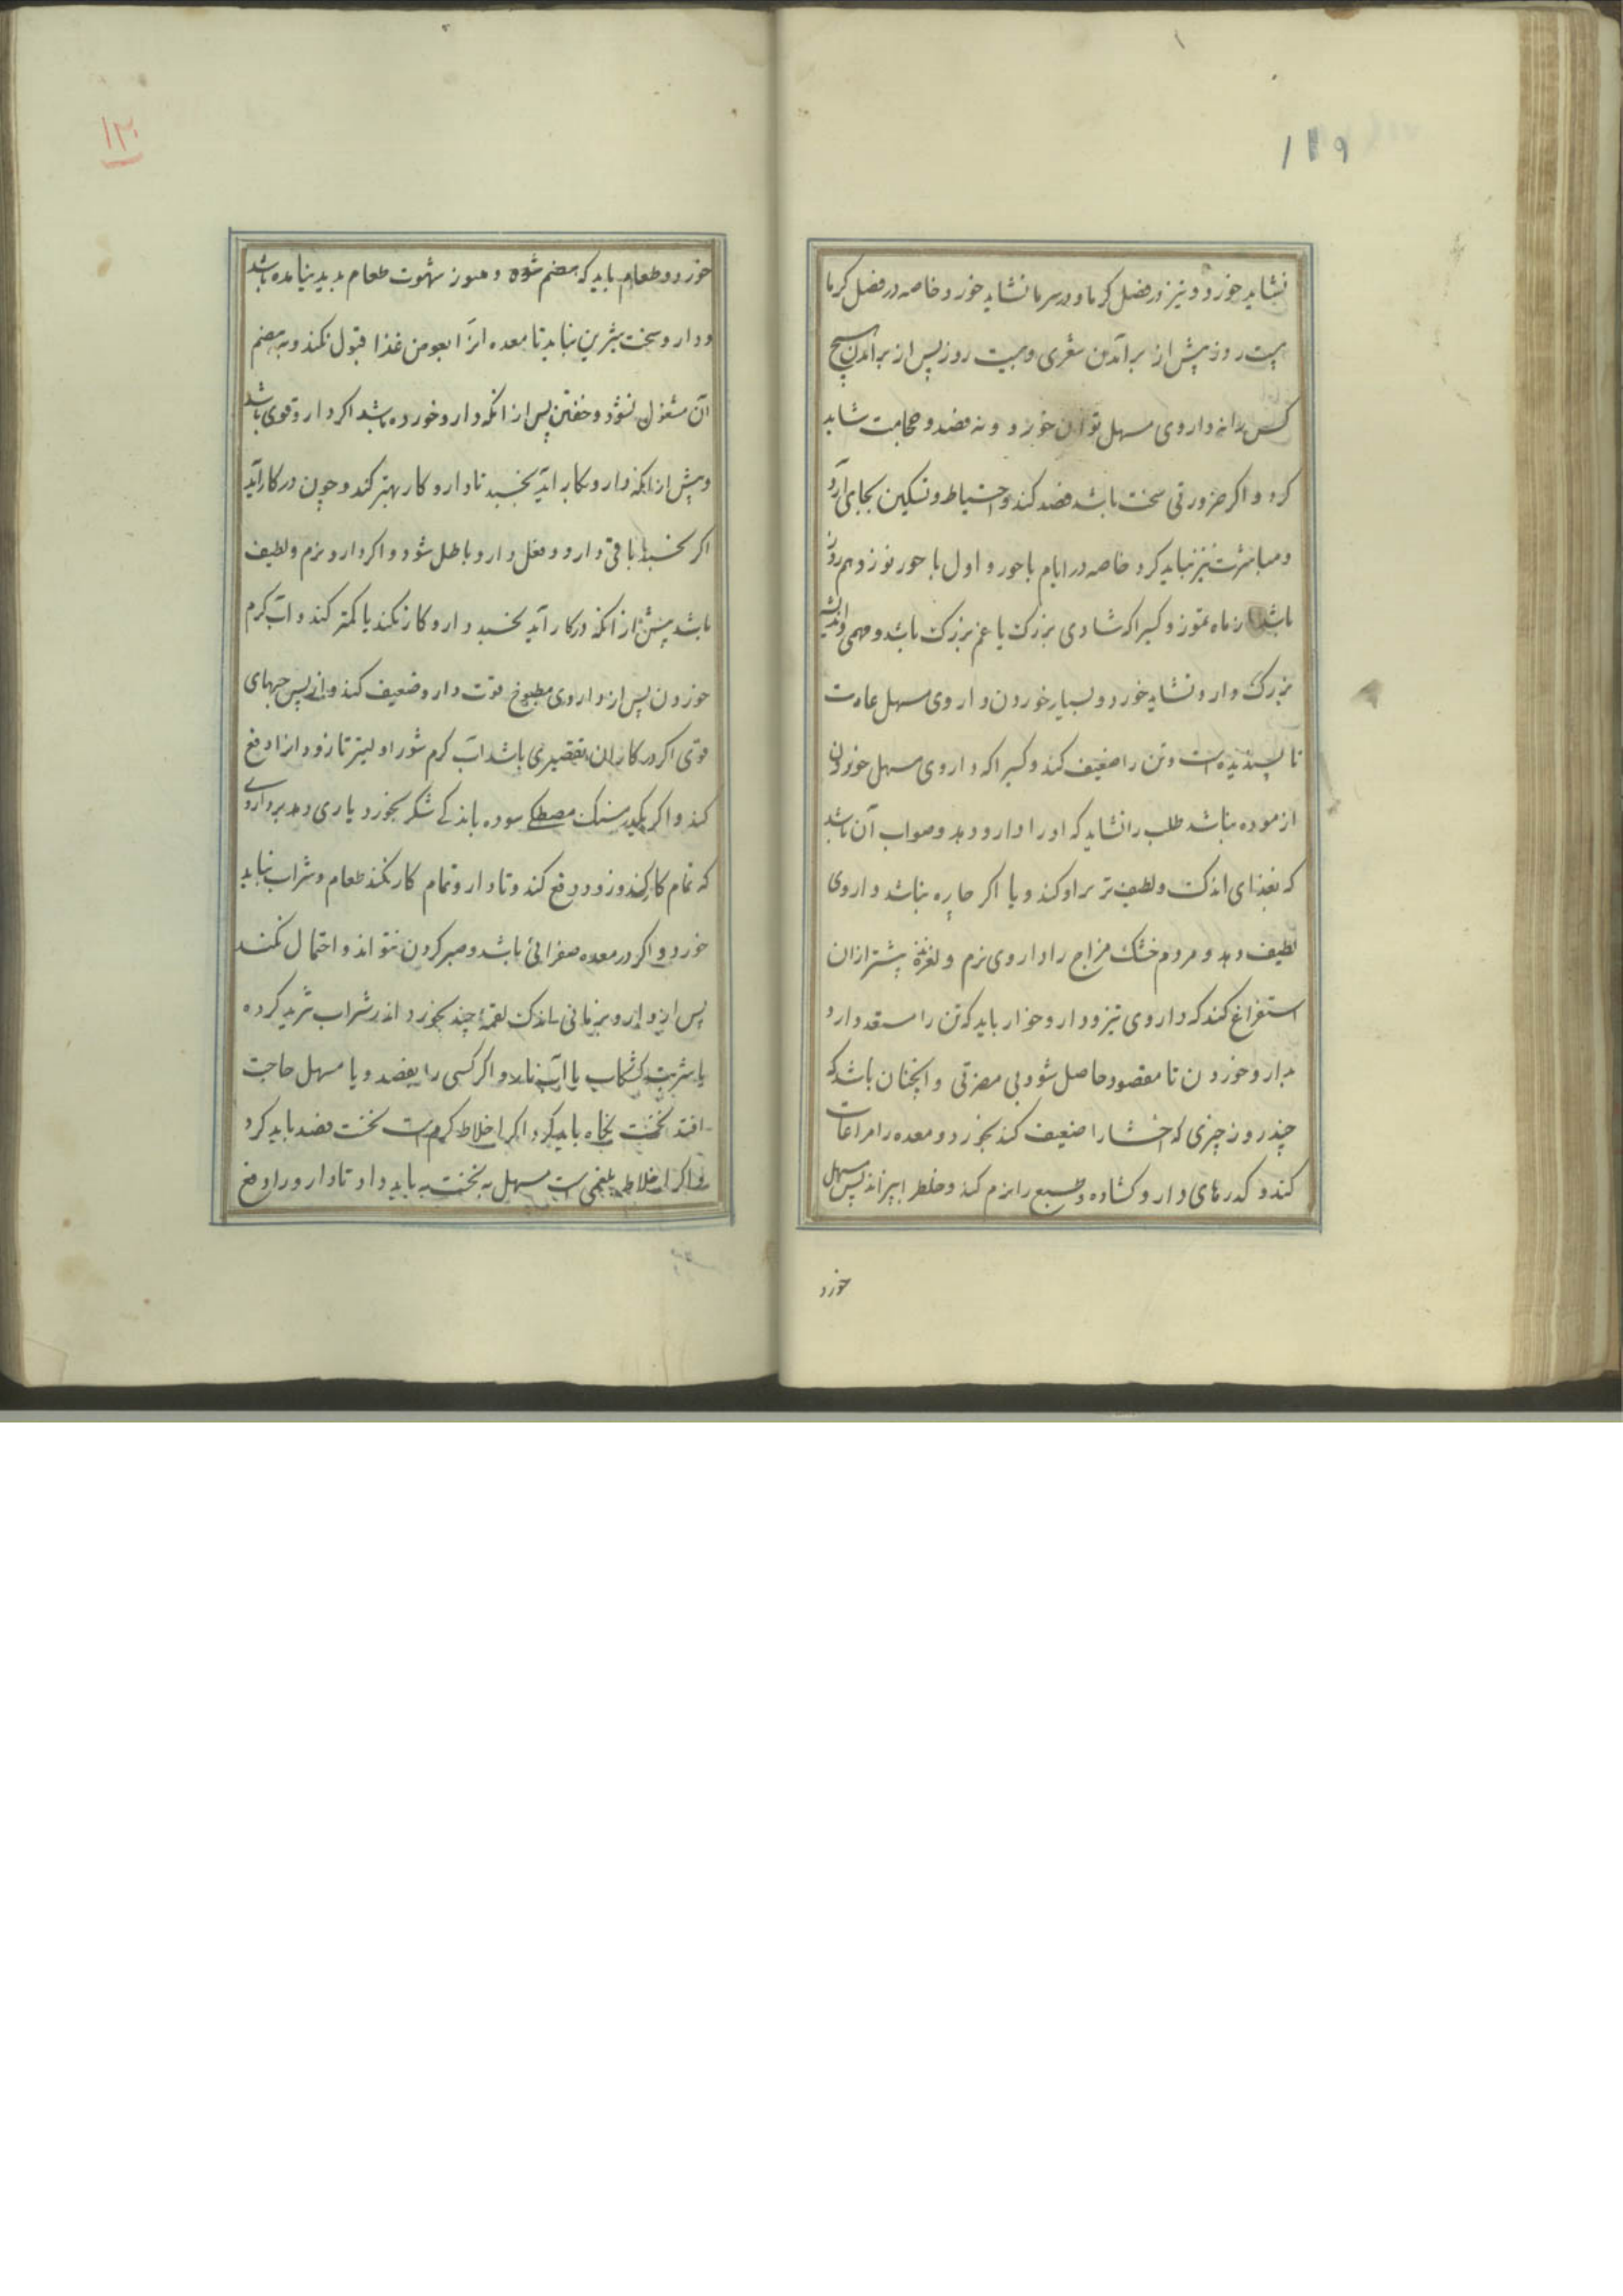 ۱۱۹
نشاید خورد و نیز در فصل کرما و در سرما نشاید خورد و خاصه در فصل کرما
بیست روز پیش از بر آمدن شعری و بیست روز پس از بر آمدن هیچ
کس را نه داروی مسهل توان خورد و نه فصد و حجامت شاید
کرد و اکر ضرورتی سخت باشد فصد کند و احتیاط و تسکین بجای آرد
و مباشرت نیز نباید کرد خاصه در ایام باحور و اول باحور نوزدهم روز
باشد از ماه تموز و کسیرا که شادی بزرک یا غم بزرک باشد و مهمی و اندیشه
بزرک دارو نشاید خورد و بسیار خوردن داروی مسهل عادت
نا پسندیده است و تن را ضعیف کند و کسیرا که داروی مسهل خوردن
ازموده نباشد طبیب را نشاید که او را دارو دهد و صواب آن باشد
که بغذای اندک و لطیف تر بر او کند و یا اکر چاره نباشد داروی
لطیف دهد و مردم خشک مزاج را داروی نرم و لغزنده پیشتر ازان
استفراغ کند که داروی تیز و دارو خوار باید که تن را مستعد دارد
بدارو خوردن تا مقصود حاصل شود بی مضرتی و انچنان باشد که
چند روز چیزی که احشا را ضعیف کند نخورد و معده را مراعات
کند و کذرهای دارو کشاده و طبع را نرم کند و خلط را بپزاند پس مسهل
خورد
۱۲۰
خورد و طعام باید که هضم شده و هنوز شهوت طعام پدید نیامده باشد
و دارو سخت شیرین نباید تا معده انرا بعوض غذا قبول نکند و به هضم
آن مشغول نشود و خفتن پس از انکه دارو خورده باشد اکر دارو قوی باشد
و پیش از انکه دارو بکار اید بخسبد تا دارو کار بهتر کند و چون در کار آید
اکر بخسبد باقی دارو و فعل دارو باطل شود و اکر دارو نرم و لطیف
باشد پیش از انکه در کار آید بخسبد دارو کار نکند یا کمتر کند و آب کرم
خوردن پس از داروی مطبوخ قوت دارو ضعیف کند و از پس حبهای
قوی اکر در کار ان تقصیری باشد آب کرم شور اولیتر تا زود از او دفع
کند و اکر یکدرمسنک مصطکی سوده باندکی شکر بخورد یاری دهد بر داروی
که تمام کار کند و زود دفع کند و تا دارو تمام کار نکند طعام و شراب نباید
خورد و اکر در معده صفرائی باشد و صبر کردن نتواند و احتمال نکند
پس از دارو بزمانی اندک لقمۀ چند بخورد اندر شراب ثرید کرده
یا شربت کشکاب یا آب انار و اکر کسی را بفصد و یا مسهل حاجت
افتد نخست نکاه باید کرد اکر اخلاط کرم است نخست فصد باید کرد
و اکر اخلاط بلغمی است مسهل نخست باید داد تا دارو را دفع